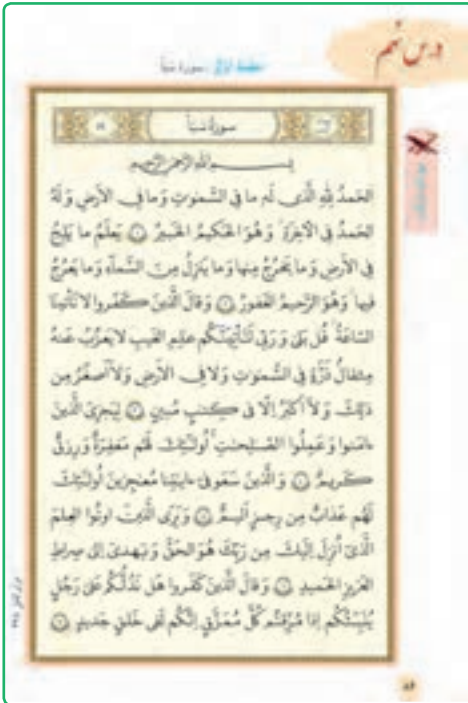 درس نهم
جلسه اول: سوره سبأ
سورة سبأ
بسم الله الرحمن الرحيم
الحمد لله الذی له ما فی السموت وما فی الارض وله
الحمد فی الاخرة وهو الحکیم الخبیر ١ یعلم ما یلج
فی الارض وما یخرج منها وما ینزل من السماء وما یعرج
فیها وهو الرحیم الغفور ٢ وقال الذین کفروا لا تاتینا
الساعة قل بلی وربی لتاتینکم علم الغیب لا یعزب عنه
مثقال ذرة فی السموت ولا فی الارض ولا اصغر من
ذلک ولا اکبر الا فی کتب مبین ٣ لیجزی الذین
ءامنوا وعملوا الصلحت اولئک لهم مغفرة ورزق
کریم ٤ والذین سعو فی ءایتنا معجزین اولئک
لهم عذاب من رجز الیم ٥ ویری الذین اوتوا العلم
الذی انزل الیک من ربک هو الحق ویهدی الی صرط
العزیز الحمید ٦ وقال الذین کفروا هل ندلکم علی رجل
ینبئکم اذا مزقتم کل ممزق انکم لفی خلق جدید ٧